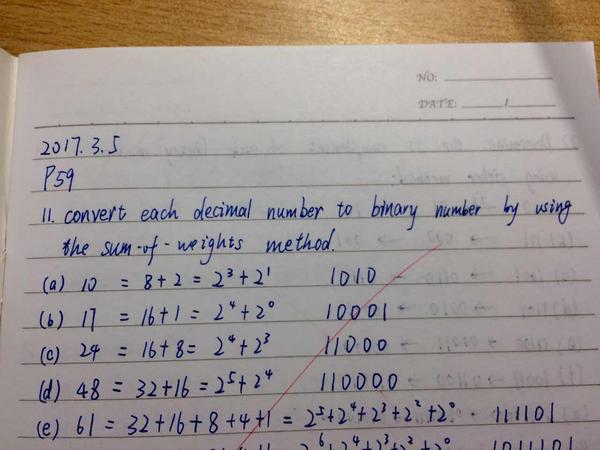 NO:
DATE: /
2017.3.5
P59
11. convert each decimal number to binary number by using
the sum-of-weights method.
(a) 10 = 8+2 = 2³+2¹ 1010
(b) 17 = 16+1 = 2⁴+2⁰ 10001
(c) 24 = 16+8= 2⁴+2³ 11000
(d) 48 = 32+16=2⁵+2⁴ 110000
(e) 61 = 32+16+8+4+1 = 2⁵+2⁴+2³+2²+2⁰. 111101
2⁶+2⁴+2³+2²+2⁰ 1011101